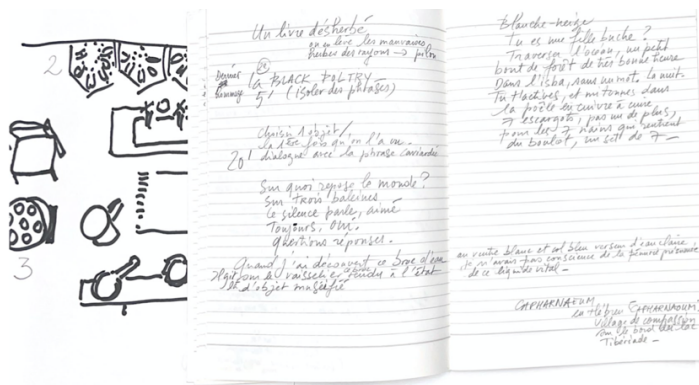 2
3
Un livre désherbé
on enlève les mauvaises
herbes des rayons → pilon
Dernier
hommage
BLACK POETRY
5' (isoler des phrases)
Choisir 1 objet,
la 1ère fois qu'on l'a vu.
20' dialogue avec la phrase caviardée
Sur quoi repose le monde ?
Sur trois baleines
Le silence parle, aimé
Toujours, Om.
questions réponses.
Quand j'ai découvert ce broc d'eau
dans le vaisselier rendu à l'état
d'objet muséifié
Blanche-neige
Tu es une fille biche ?
Traverser l'océan, un petit
bout de forêt de très bonne heure
Dans l'isba, sans un mot, la nuit.
Tu t'actives, et m'tennes dans
la poêle en cuivre à cuire
7 escargots, pas un de plus,
pour les 7 nains qui rentrent
du boulot, un set de 7 —
au ventre blanc et col bleu verseur d'eau claire,
je n'avais pas conscience de la pénurie prochaine
de ce liquide vital —
CAPHARNAEUM
en hébreu CAPHARNAOUM,
Village de compassion
au bord du lac
Tibériade —